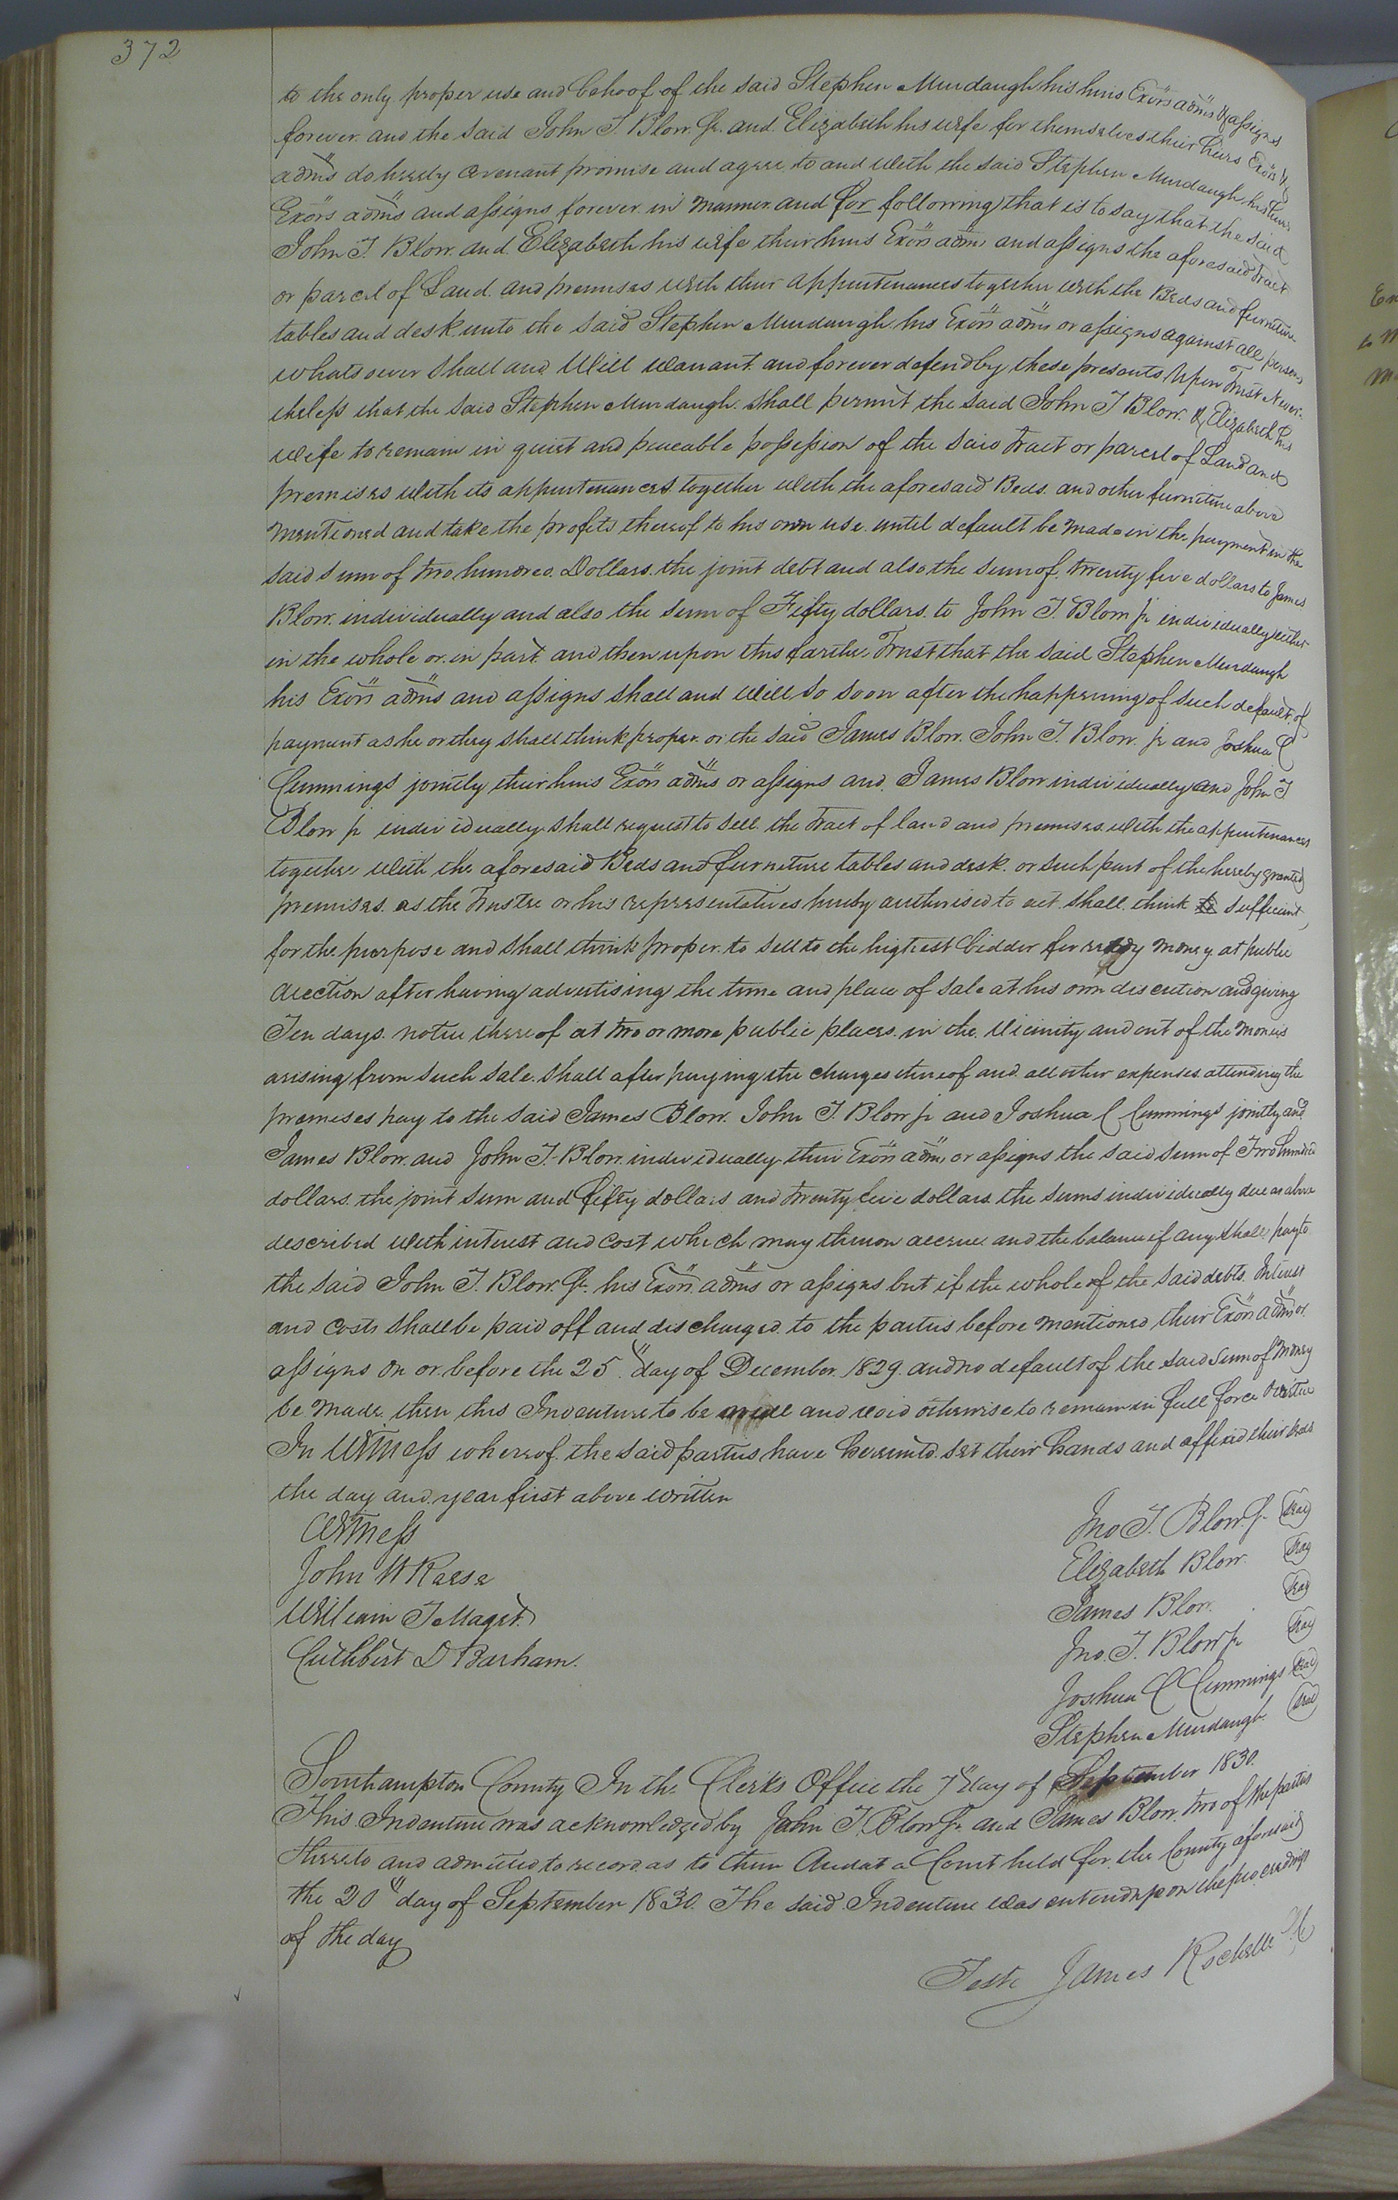 372
to the only proper use and behoof of the said Stephen Murdaugh his heirs Exōrs adm̄s & assigns
forever. and the said John T. Blow Sr. and Elizabeth his wife for themselves their heirs Exōrs &
adm̄s do hereby covenant promise and agree to and with the said Stephen Murdaugh his heirs
Exōrs adm̄s and assigns forever in manner and for following that is to say that the said
John T. Blow. and Elizabeth his wife their heirs Exōrs adm̄s and assigns the aforesaid tract
or parcel of Land and premises with their appurtenances together with the Beds and furniture
tables and desk unto the said Stephen Murdaugh his Exōrs adm̄s or assigns against all persons
whatsoever shall and Will Warrant and forever defend by these presents Upon Trust Never-
theless that the said Stephen Murdaugh shall permit the said John T Blow. & Elizabeth his
wife to remain in quiet and peaceable possession of the said tract or parcel of Land and
premises with its appurtenances together with the aforesaid Beds. and other furniture above
mentioned and take the profits thereof to his own use until default be made in the payment in the
said sum of two hundred Dollars the joint debt and also the sum of twenty five dollars to James
Blow. individually and also the sum of Fifty dollars to John T. Blow jr individually either
in the whole or in part and then upon this farther Trust that the said Stephen Murdaugh
his Exōrs adm̄s and assigns shall and Will so soon after the happening of such default of
payment as he or they shall think proper or the said James Blow. John T. Blow jr and Joshua C
Cummings jointly their heirs Exōrs adm̄s or assigns and James Blow individually and John T
Blow jr individually shall request to sell the tract of land and premises with the appurtenances
together with the aforesaid Beds and furniture tables and desk or such part of the hereby granted
premises. as the Trustee or his representatives hereby authorised to act shall think sufficient
for the purpose and shall think proper to sell to the highest bidder for ready money at public
auction after having advertising the time and place of sale at his own discretion and giving
Ten days. notice thereof at two or more public places in the Vicinity and out of the monies
arising from such sale shall after paying the charges thereof and all other expenses attending the
premises pay to the said James Blow. John T. Blow jr and Joshua C Cummings jointly and
James Blow and John T. Blow individually their Exōrs adm̄s or assigns the said sum of Two hundred
dollars. the joint sum and fifty dollars and twenty five dollars the sums individually due as above
described with interest and cost which may thereon accrue and the balance if any shall pay to
the said John T. Blow Sr. his Exōrs adm̄s or assigns but if the whole of the said debts. Interest
and costs shall be paid off and discharged to the parties before mentioned their Exōrs adm̄s or
assigns on or before the 25" day of December 1829. and no default of the said sum of money
be made then this Indenture to be null and void otherwise to remain in full force & virtue
In Witness whereof the said parties have hereunto set their hands and affixed their seals
the day and year first above written
Witness
John W Reese
William T Maget
Cuthbert D Barham.
Jno T. Blow Sr. Seal
Elizabeth Blow. Seal
James Blow. Seal
Jno. T. Blow jr Seal
Joshua C Cummings Seal
Stephen Murdaugh Seal
Southampton County In the Clerks Office the 7" day of September 1830.
This Indenture was acknowledged by John T. Blow Sr. and James Blow two of the parties
thereto and admitted to record as to them And at a Court held for the County aforesaid
the 20" day of September 1830. The said Indenture was entered upon the proceedings
of the day
Teste James Rochelle